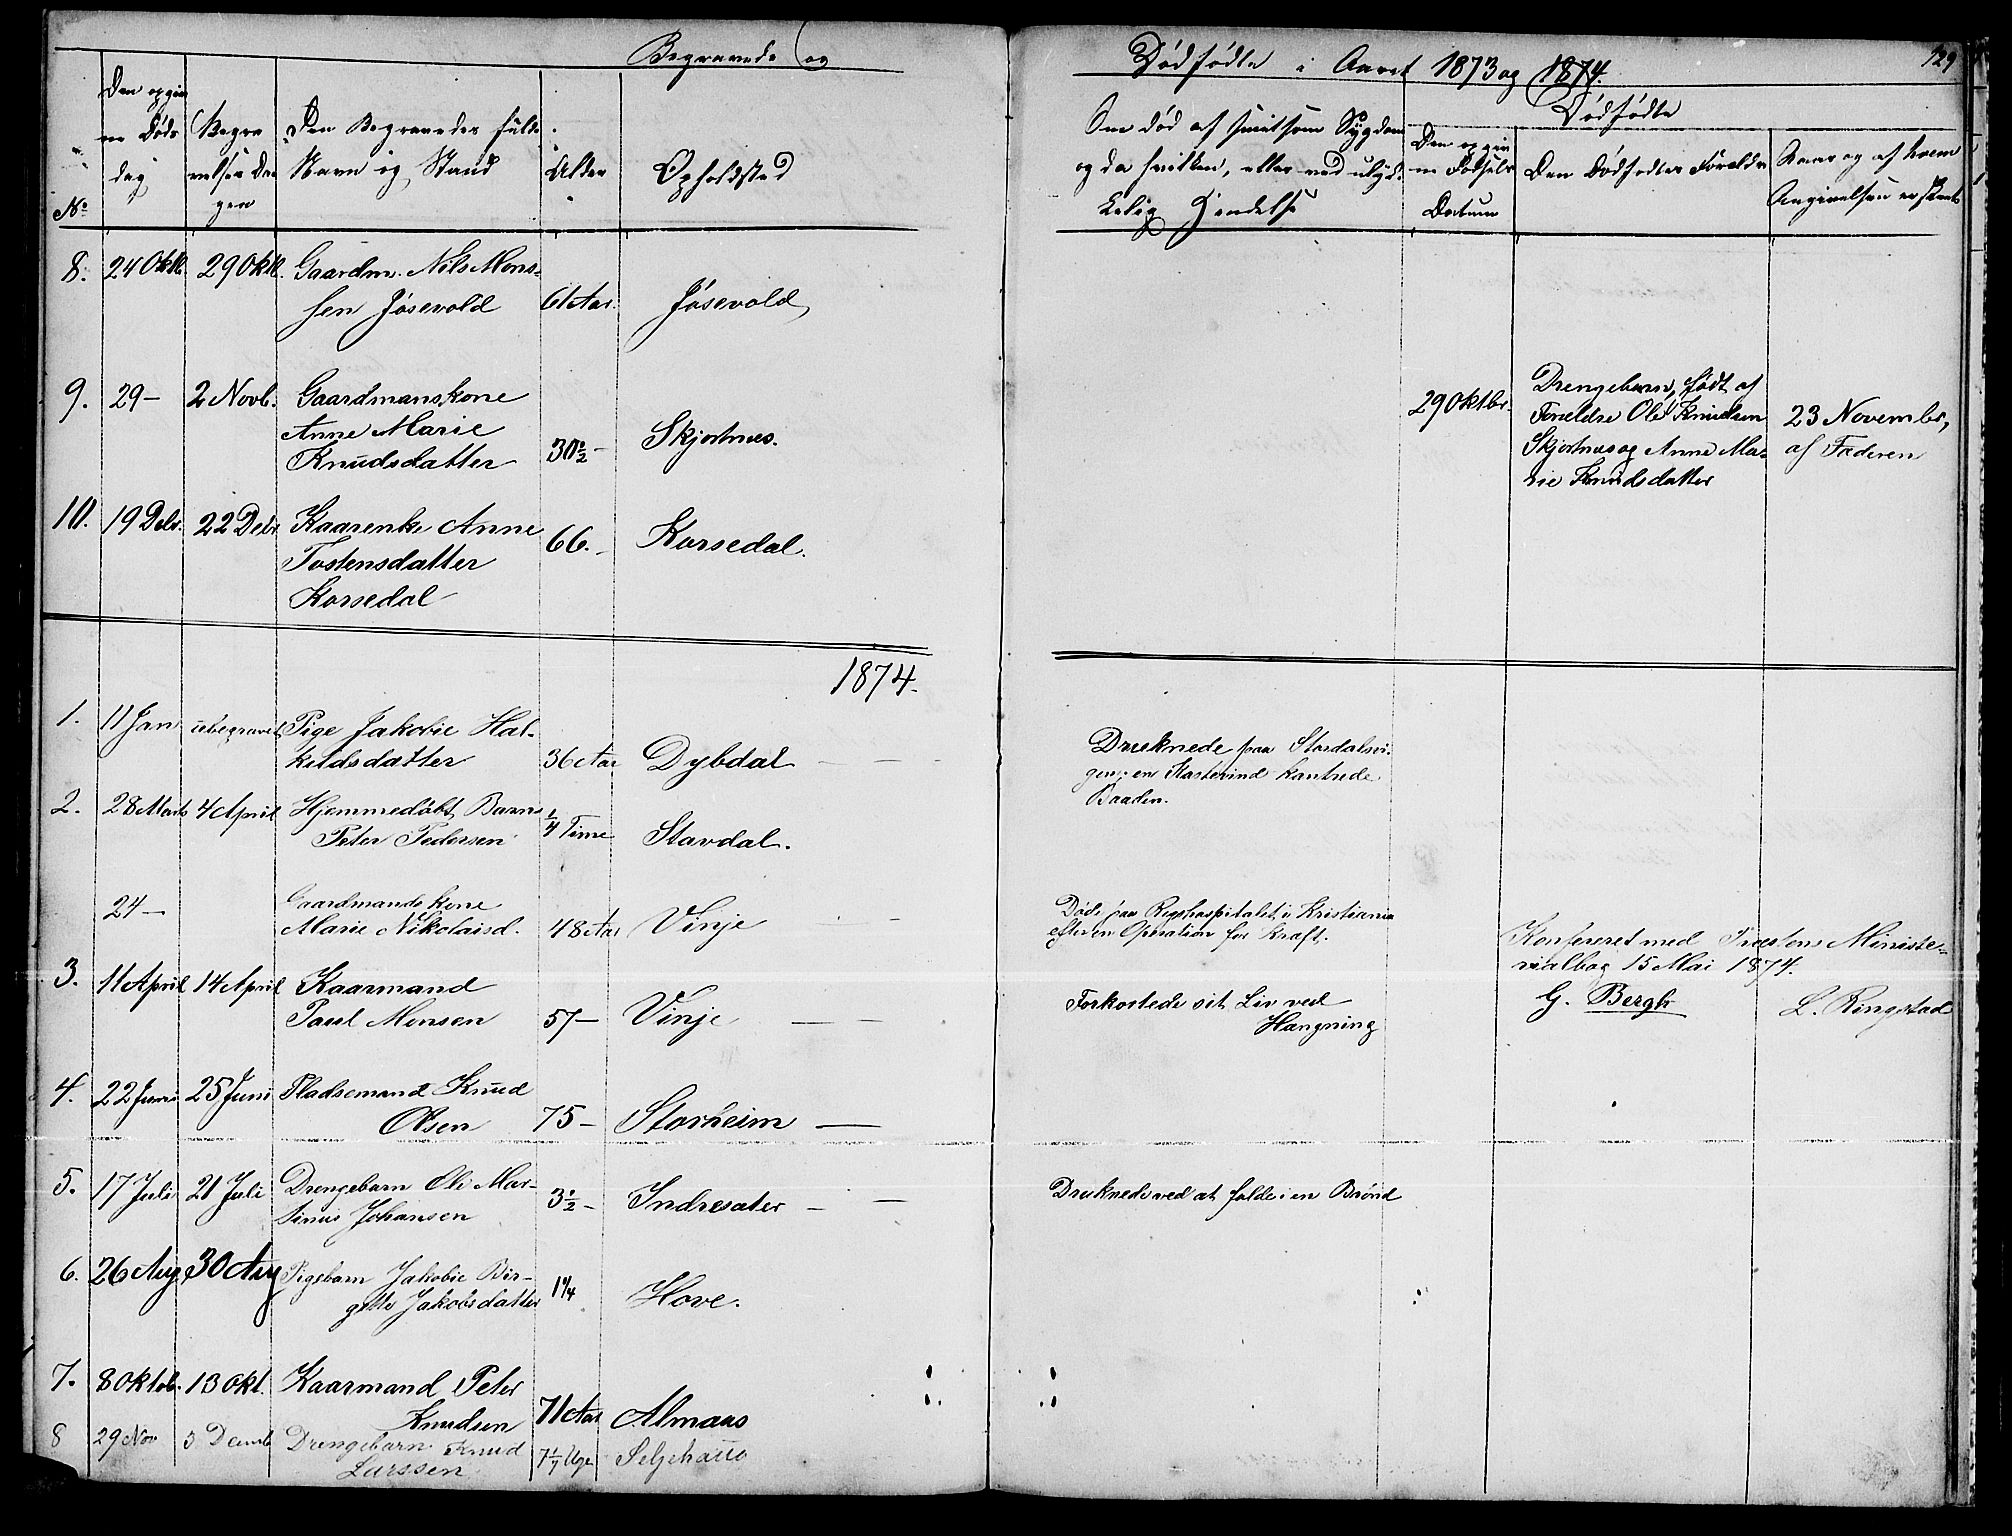 Begravede og Dødfødte i Aaret 1873 og 1874.
129
No
Den opgiv
ne Døds
dag
Begra
velses Da
gen
Den Begravedes fulde
Navn og Stand
Alder
Opholdsted
Om død af smitsom Sygdom
og da hvilken, eller ved ulyk-
kelig Hendelse
Dødfødte
Den opgiv
ne Fødsels
Datum
Den Dødfødtes Forældre
Naar og af hvem
Angivelsen er skeet
8. 24 Oktb. 29 Oktb. Gaardm. Nils Mons-
sen Jøsevold 61 Aar. Jøsevold
9. 29 - 2 Novb. Gaardmanskone
Anne Marie
Knudsdatter 30 1/2 - Skjortnæs.
29 Oktbr.
Drengebarn, født af
Foreldre Ole Knudsen
Skjortnæs og Anne Ma-
rie Knudsdatter
23 November,
af Faderen
10. 19 Debr. 22 Debr Kaarenk. Anne
Tostensdatter
Korsedal 66. - Korsedal.
1874.
1. 11 Jan ubegravet Pige Jakobie Hal-
kildsdatter 36 Aar Dybdal
Druknede paa Stordalsvi-
gen; en Kastevind kantrede
Baaden.
2. 28 Marts 4 April Hjemmedøbt Barn
Peter Pedersen 1/4 Time Stavdal.
24 - Gaardmandskone
Marie Nikolaisd. 48 Aar Vinje
Døde paa Rigshospitalet i Kristiania
efter en Operation for Kræft.
Konfereret med Præstens Ministe-
rialbog 15 Mai 1874.
G. Bergh L. Ringstad
3. 11 April 14 April Kaarmand
Paul Monsen 57 - Vinje
Forkortede sit Liv ved
Hængning
4. 22 Juni 25 Juni Pladsemand Knud
Olsen 75 - Storheim
5. 17 Juli 21 Juli Drengebarn Ole Mar-
tinus Johansen 3 1/2 - Indresæter
Druknede ved at falde i en Brønd
6. 26 Aug 30 Aug Pigebarn Jakobie Bir-
gitte Jakobsdatter 1 1/4 Hove.
7. 8 Oktob. 13 Okt. Kaarmand Peter
Knudsen 71 Aar Almaas
8 29 Nov 3 Decemb Drengebarn Knud
Larssen 7 1/7 Uge Seljehaug